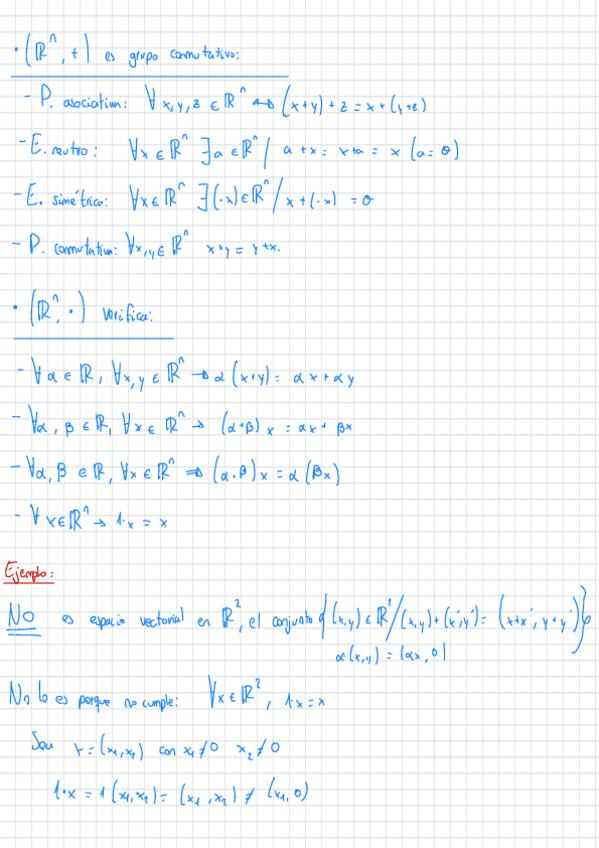 · (ℝⁿ, +) es grupo conmutativo:
- P. asociativa: ∀ x, y, z ∈ ℝⁿ ↔ (x+y) + z = x + (y+z)
- E. neutro: ∀x ∈ ℝⁿ ∃ a ∈ ℝⁿ / a + x = x+a = x (a = θ)
- E. simétrico: ∀x ∈ ℝⁿ ∃ (-x) ∈ ℝⁿ / x + (-x) = θ
- P. conmutativa: ∀x,y ∈ ℝⁿ x+y = y+x.
· (ℝⁿ, ·) verifica:
- ∀ α ∈ ℝ, ∀x, y ∈ ℝⁿ → α (x+y) = αx + αy
- ∀α, β ∈ ℝ, ∀x ∈ ℝⁿ → (α+β) x = αx + βx
- ∀α, β ∈ ℝ, ∀x ∈ ℝⁿ ⇒ (α·β) x = α (βx)
- ∀ x ∈ ℝⁿ → 1·x = x
Ejemplo:
NO es espacio vectorial en ℝ², el conjunto {(x,y) ∈ ℝ² / (x,y) + (x',y') = (x+x', y+y')}
α(x,y) = (αx, 0)
No lo es porque no cumple: ∀x ∈ ℝ², 1·x = x
Sea x = (x₁, x₂) con x₁ ≠ 0 x₂ ≠ 0
1·x = 1 (x₁, x₂) = (x₁, x₂) ≠ (x₁, 0)